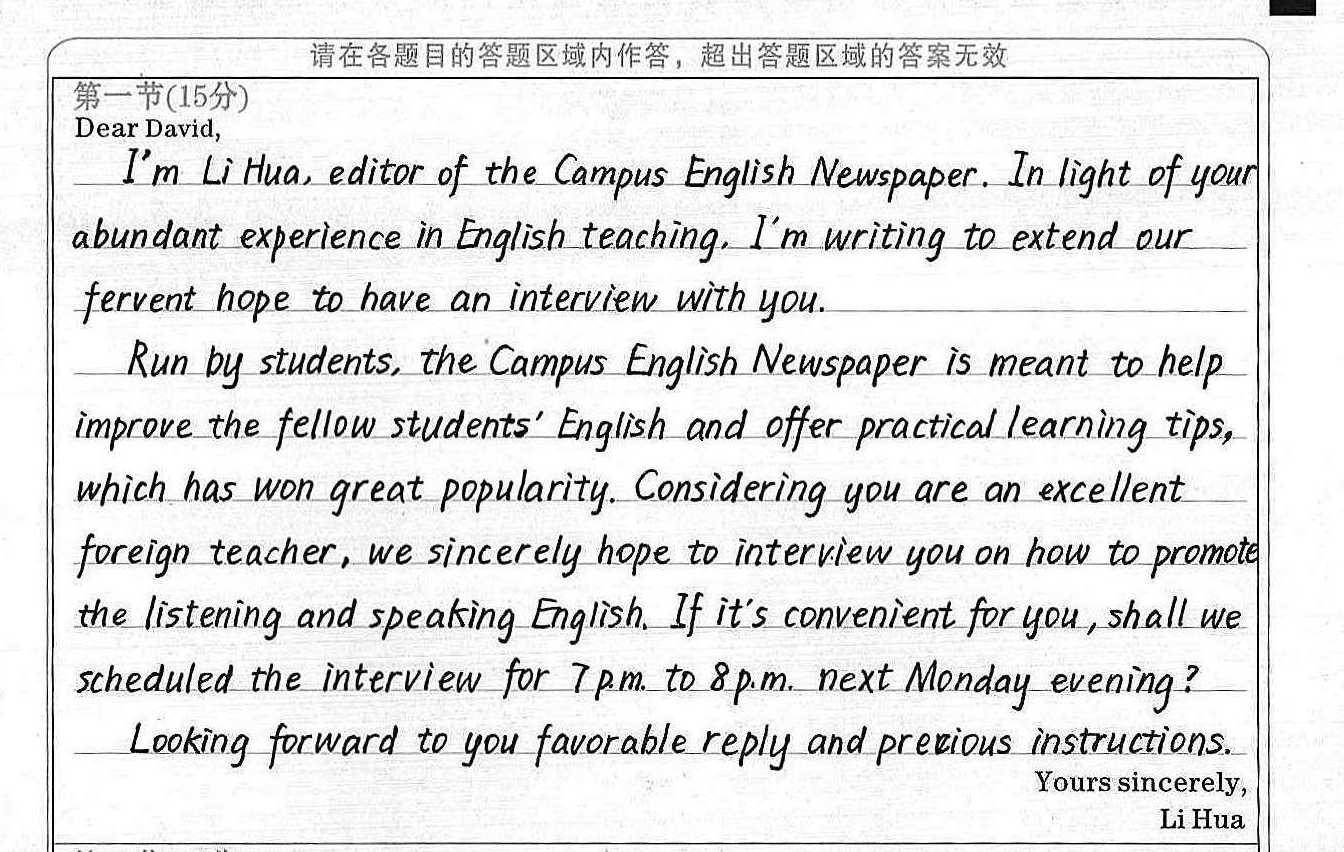 请在各题目的答题区域内作答，超出答题区域的答案无效
第一节(15分)
Dear David,
I'm Li Hua, editor of the Campus English Newspaper. In light of your
abundant experience in English teaching, I'm writing to extend our
fervent hope to have an interview with you.
Run by students, the Campus English Newspaper is meant to help
improve the fellow students' English and offer practical learning tips,
which has won great popularity. Considering you are an excellent
foreign teacher, we sincerely hope to interview you on how to promote
the listening and speaking English. If it's convenient for you, shall we
scheduled the interview for 7 p.m. to 8 p.m. next Monday evening?
Looking forward to you favorable reply and precious instructions.
Yours sincerely,
Li Hua